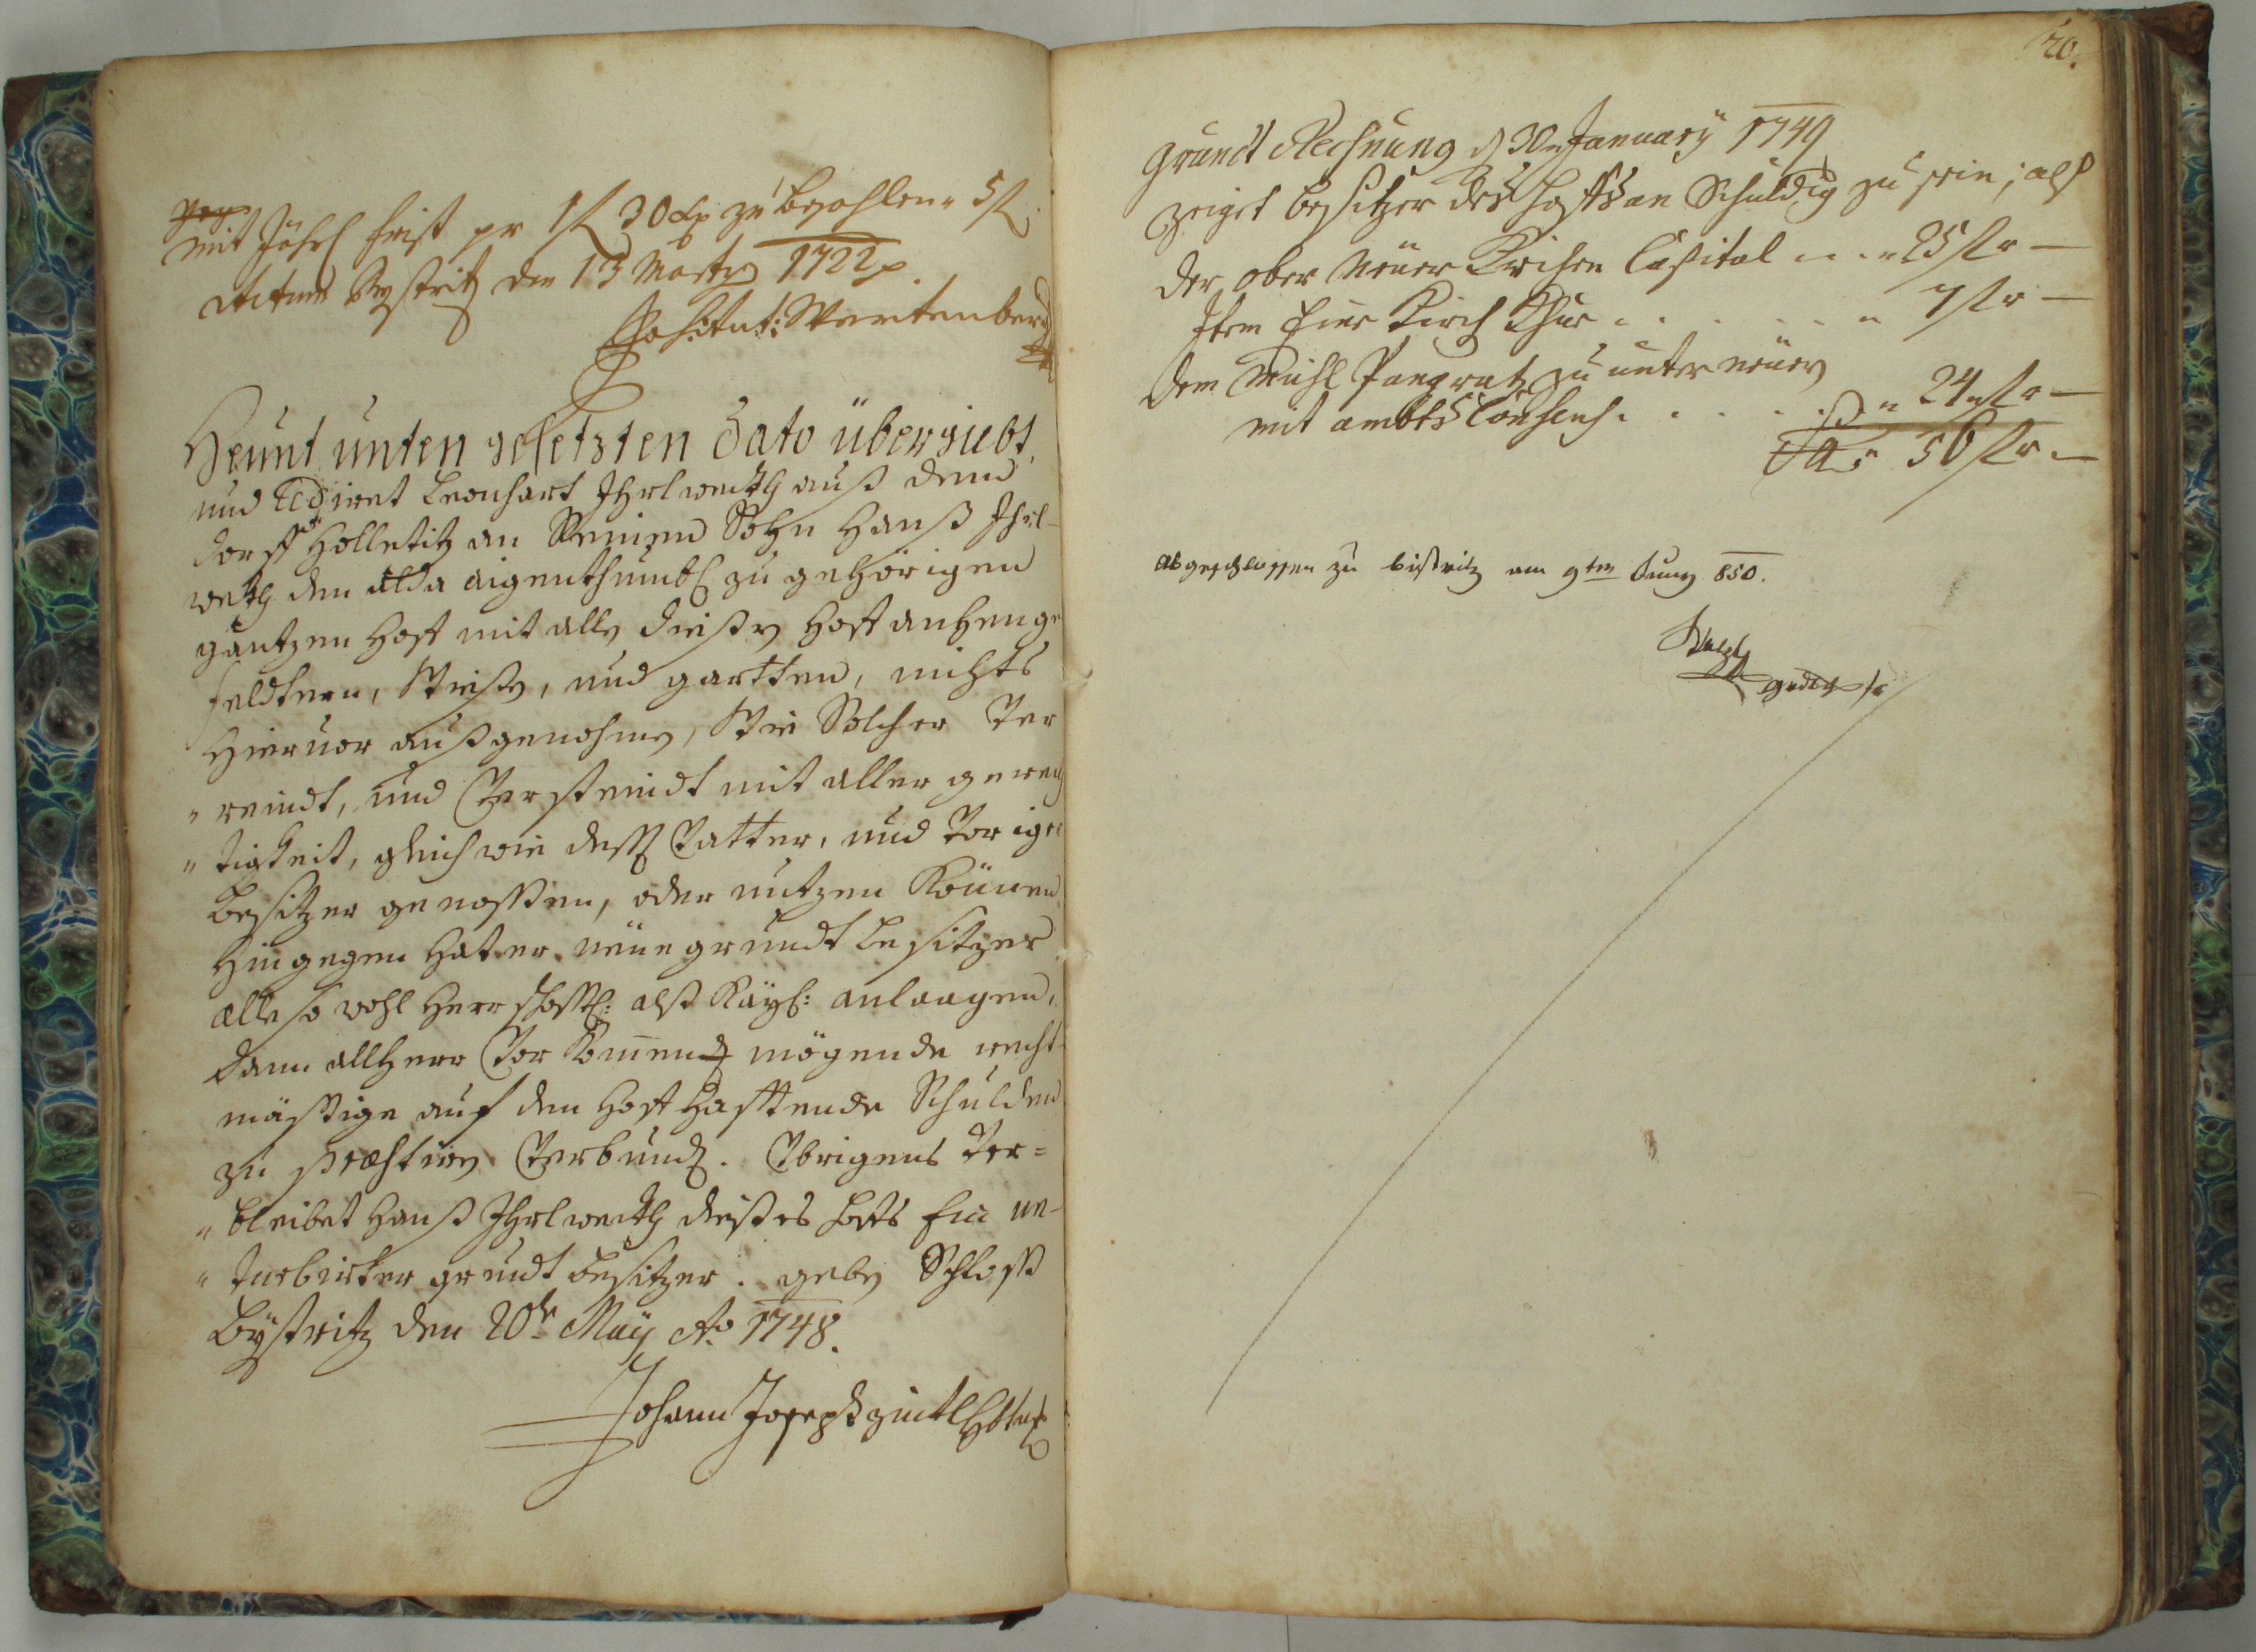 mit Jährl frist pr 1 fl 30 Xr zu bezahlen 5 fl
Actum Bystritz den 13 Marty 1722
Wartenberg
Heunt unten gesetzten Dato übergiebt,
und Cediret Leonhart Ihrlweth auß dem
dorff Holletitz an Seinen Sohn Hanß Ihrl-
weth den alda aigenthumbl zu gehörigen
gantzen Hoff mit alle dießen Hoff anhenge
feldtern, Wießen, und gartten, nichts
Hieruor außgenohmen, Wie Solcher Ver
"reindt, und Versteindt mit aller gerech
"tigkeit, gleich wie dessen Vatter, und Vorige
Besitzer genossen, oder nutzen Können
Hingegen Hat er neue grundt besitzer
alle so wohl Herrschafftl: alß Kayl: anlaagen,
dann all Herr Vor Komend mögende recht-
mässige auf den Hoff Hafftende Schulden
zu præstiren Verbunden. Übrigens Ver=
"bleibet Hanß Ihrlweth dießes Hoffs Ein un-
"turbirter grundt besitzer. geben Schloß
Bystritz den 20ten May Ao 1748.
Johann Joseph
20.
Grundt Rechnung d 30 January 1749
zeiget besitzer des Hoffs an Schuldig zu sein; alß
der ober Neuer Kirchen Capital 25 fl r —
Item Eine Kirch Khue 7 fl r —
dem Michl Pangratz zu unter neuern
mit ambts Consens 24 fl r —
56 fl r —
Abgeschlossen zu bistritz am 9ten Juny 850.